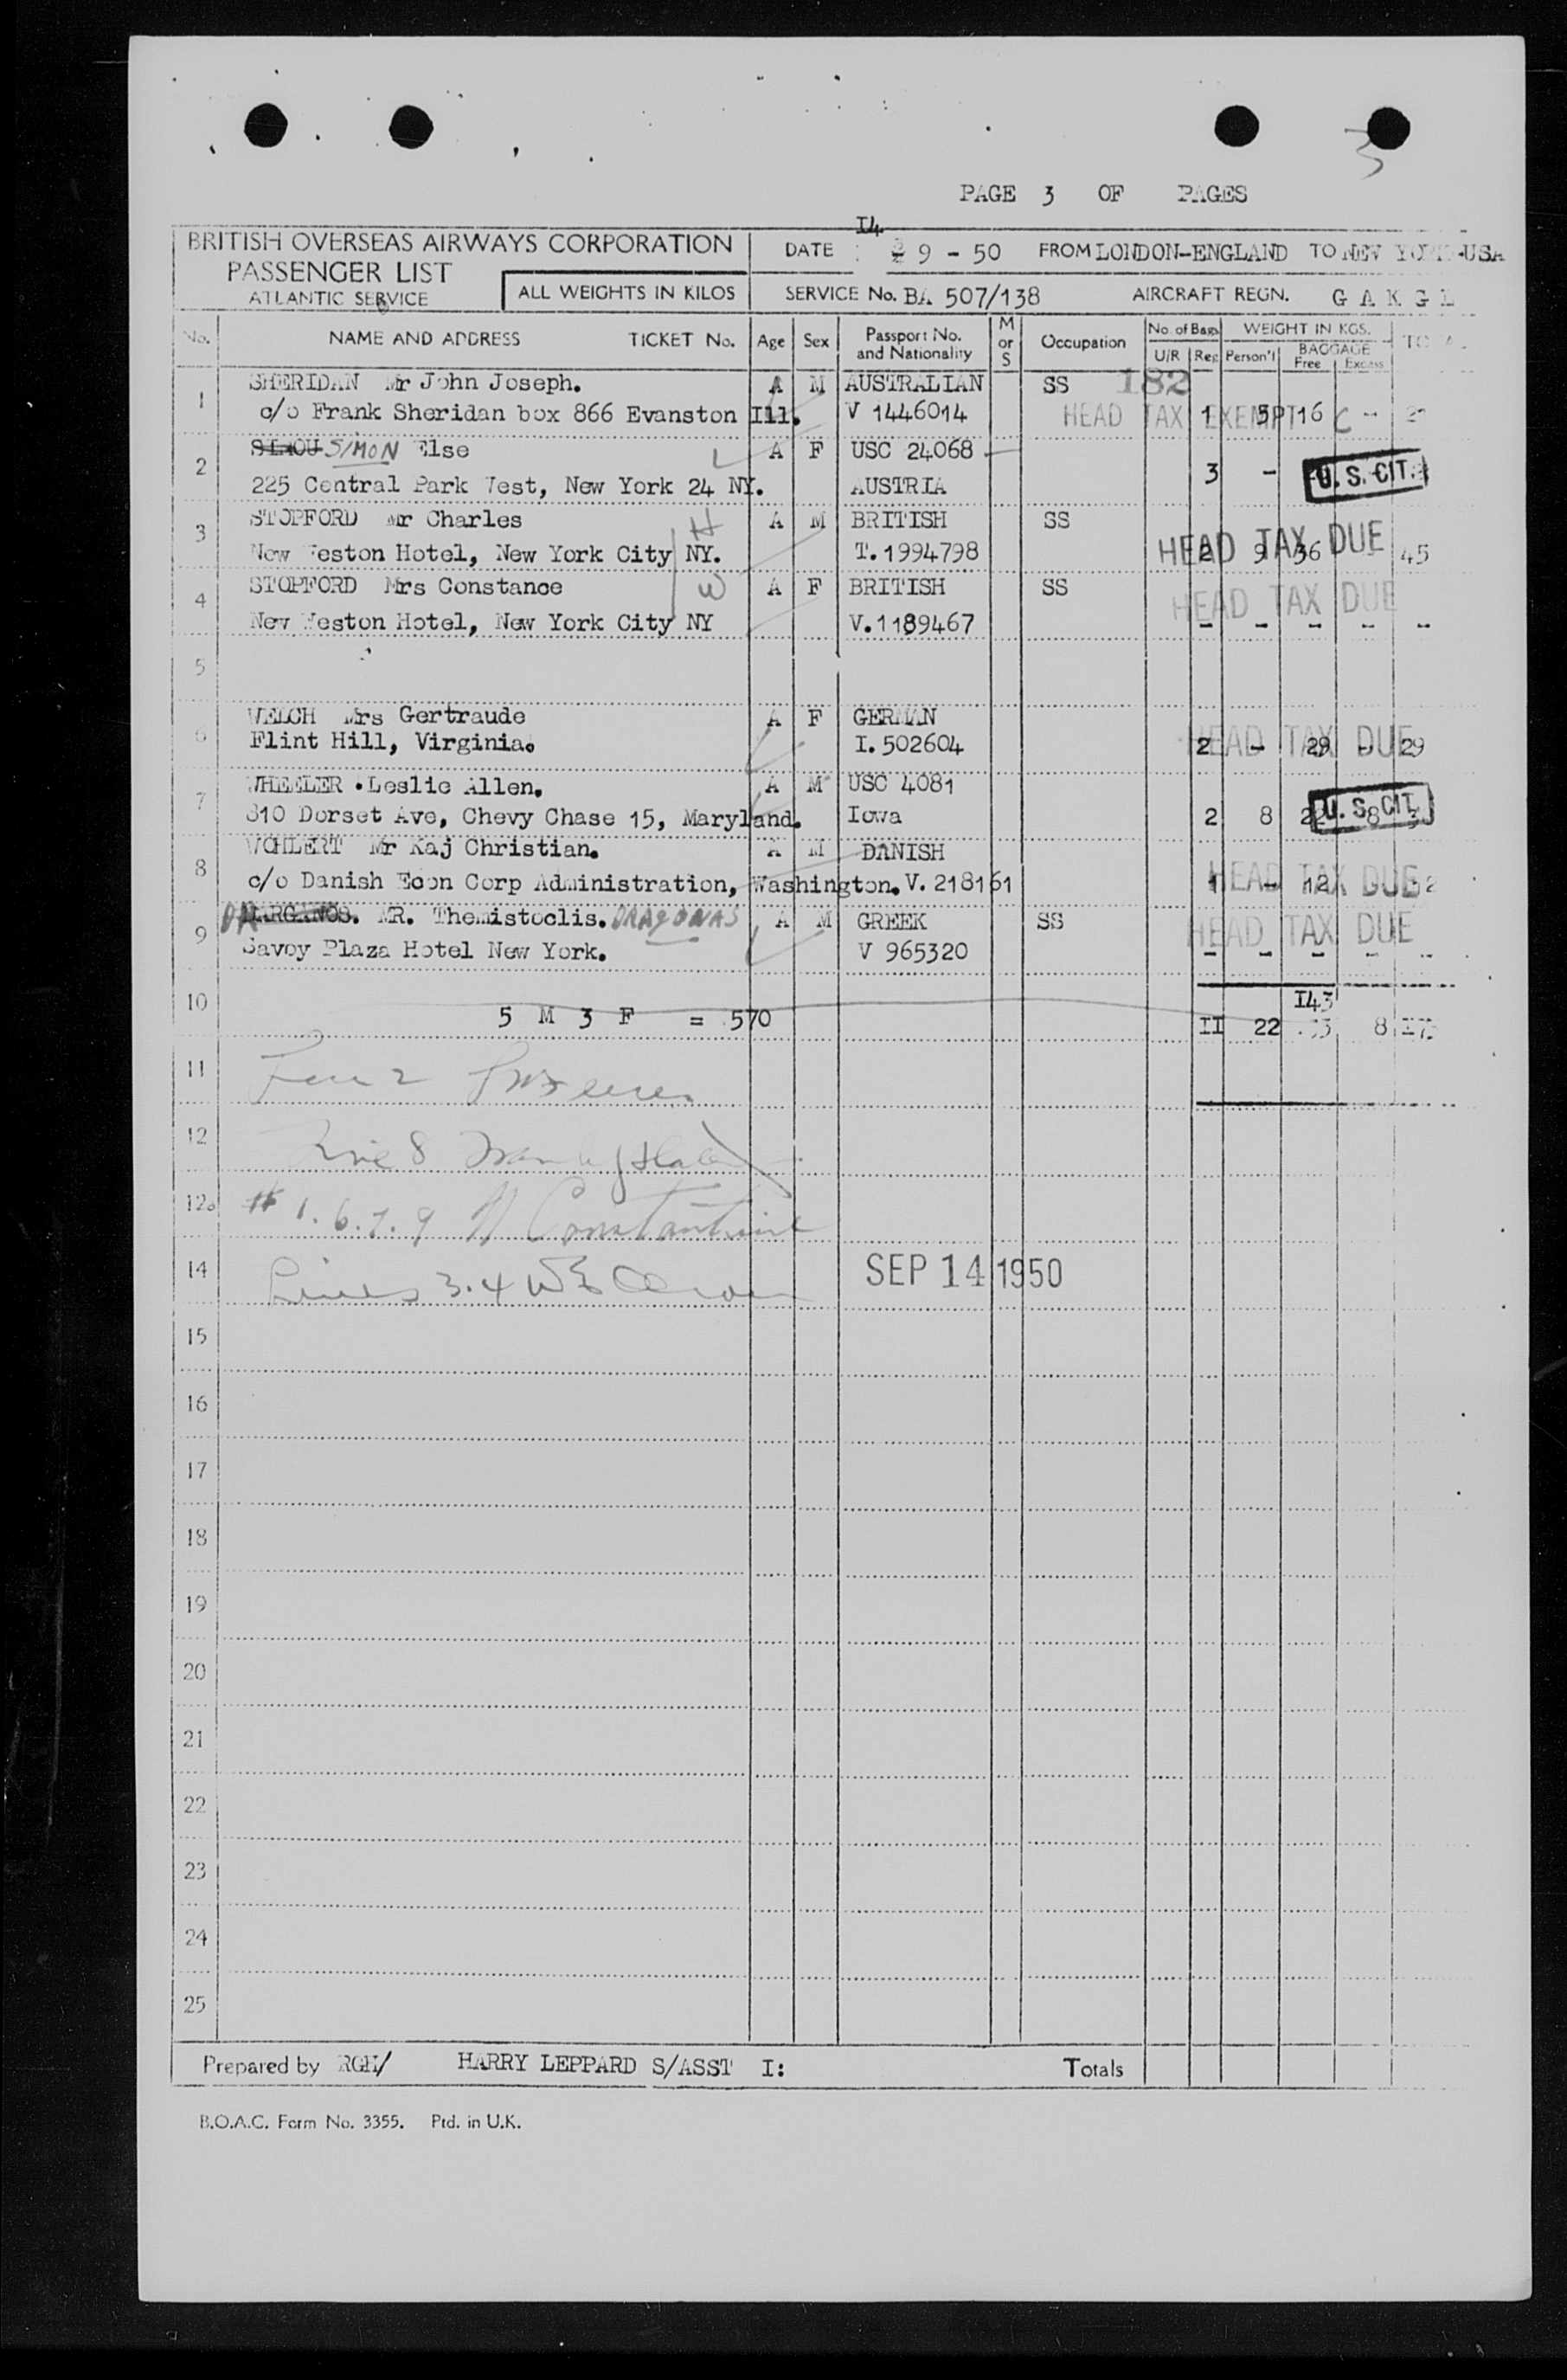 3
PAGE 3 OF PAGES
BRITISH OVERSEAS AIRWAYS CORPORATION
PASSENGER LIST
ATLANTIC SERVICE
ALL WEIGHTS IN KILOS
14
DATE 9 - 50 FROM LONDON-ENGLAND TO NEW YORK-USA
SERVICE No. BA 507/138 AIRCRAFT REGN. G A K G L
No. NAME AND ADDRESS TICKET No. Age Sex Passport No. and Nationality M or S Occupation No. of Bags U/R Reg WEIGHT IN KGS. Person'l BAGGAGE Free Excess TOTAL
1 SHERIDAN Mr John Joseph. A M AUSTRALIAN SS 182
c/o Frank Sheridan box 866 Evanston Ill. V 1446014 HEAD TAX EXEMPT 1 5 16 C -
2 SIMON Else A F USC 24068
225 Central Park West, New York 24 NY. AUSTRIA 3 - U. S. CIT.
3 STOPFORD Mr Charles H A M BRITISH SS
New Weston Hotel, New York City NY. T. 1994798 HEAD TAX DUE 2 9 36 - 45
4 STOPFORD Mrs Constance W A F BRITISH SS
New Weston Hotel, New York City NY V. 1189467 HEAD TAX DUE - - - - -
5
6 WELCH Mrs Gertraude A F GERMAN
Flint Hill, Virginia. I. 502604 HEAD TAX DUE 2 - 29 - 29
7 WHEELER . Leslie Allen. A M USC 4081
810 Dorset Ave, Chevy Chase 15, Maryland. Iowa 2 8 22 8 U. S. CIT.
8 WOHLERT Mr Kaj Christian. A M DANISH
c/o Danish Econ Corp Administration, Washington. V. 218161 HEAD TAX DUE 1 - 12
9 DARGANOS. MR. Themistoclis. DRAGONAS A M GREEK SS
Savoy Plaza Hotel New York. V 965320 HEAD TAX DUE - - - - -
10 143
5 M 3 F = 570 II 22 8
11
12
Line 8
12a # 1. 6. 7. 9 N Constantine
14 Lines 3. 4 SEP 14 1950
15
16
17
18
19
20
21
22
23
24
25
Prepared by RGH/ HARRY LEPPARD S/ASST I: Totals
B.O.A.C. Form No. 3355. Ptd. in U.K.